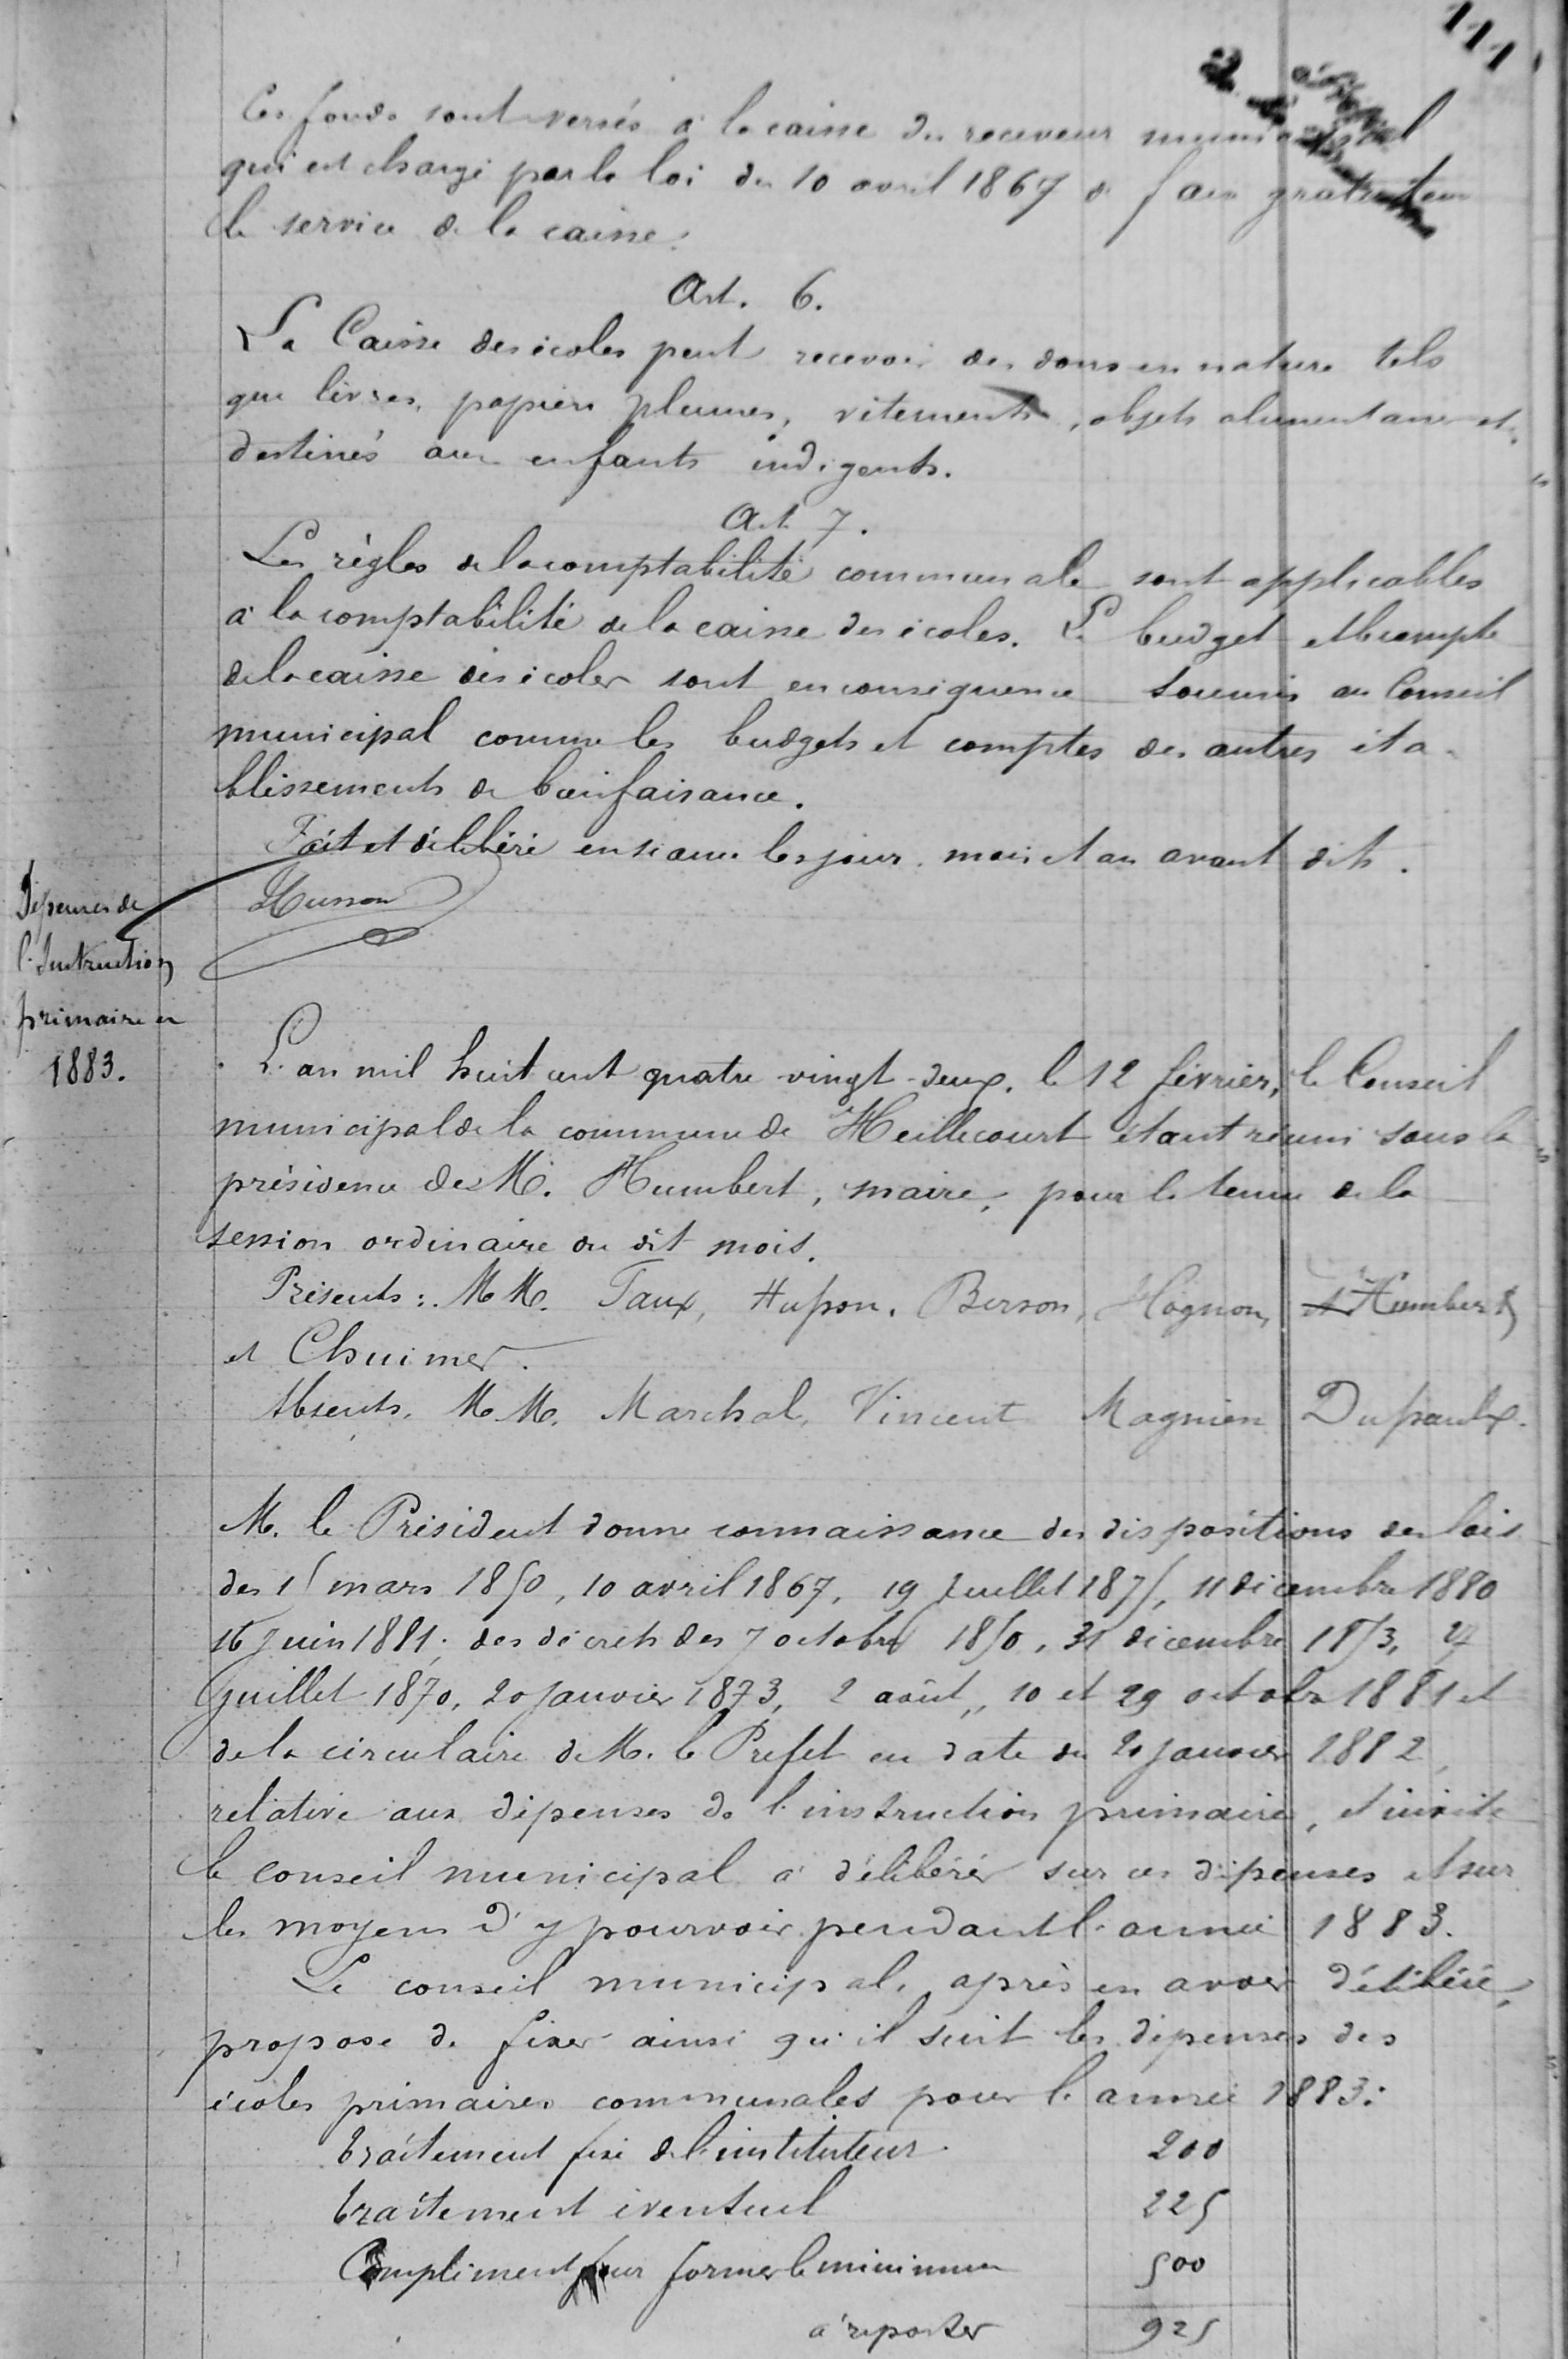 111
Les fonds sont versés à la caisse du receveur municipal
qui est chargé par la loi du 10 avril 1867 de faire gratuitem
le service de la caisse.
Art. 6.
La Caisse des écoles peut recevoir des dons en nature tels
que livres, papiers plumes, vêtements, objets alimentaires etc
destinés aux enfants indigents.
Art 7.
Les règles de la comptabilité communale sont applicables
à la comptabilité de la caisse des écoles. Le budget et le compte
de la caisse des écoles sont en conséquence soumis au Conseil
municipal comme les budgets et comptes des autres éta-
blissements de bienfaisance.
Fait et délibéré en séance les jour, mois et an avant dits.
Husson
Dépenses de
l'Instruction
primaire en
1883.
L'an mil huit cent quatre vingt-deux, le 12 février, le Conseil
municipal de la commune de Heillecourt étant réuni sous la
présidence de M. Humbert, maire, pour la tenue de la
session ordinaire du dit mois.
Présents: MM. Taux, Husson, Berson, Hognon, et Humbert
et Chuimer.
Absents. MM. Marchal, Vincent Magnien Dupaulx.
M. le Président donne connaissance des dispositions des lois
des 15 mars 1850, 10 avril 1867, 19 Juillet 1875, 11 décembre 1880
16 Juin 1881; des décrets des 7 octobre 1850, 31 décembre 1853, 27
Juillet 1870, 20 Janvier 1873, 2 août, 10 et 29 octobre 1881 et
de la circulaire de M. le Préfet en date du 20 Janvier 1882,
relative aux dépenses de l'instruction primaire, et invite
le conseil municipal à délibérer sur ces dépenses et sur
les moyens d'y pourvoir pendant l'année 1883.
Le conseil municipal, après en avoir délibéré,
propose de fixer ainsi qu'il suit les dépenses des
écoles primaires communales pour l'année 1883:
traitement fixe de l'instituteur. 200
traitement éventuel 225
Complément pour former le minimum 500
à reporter 925